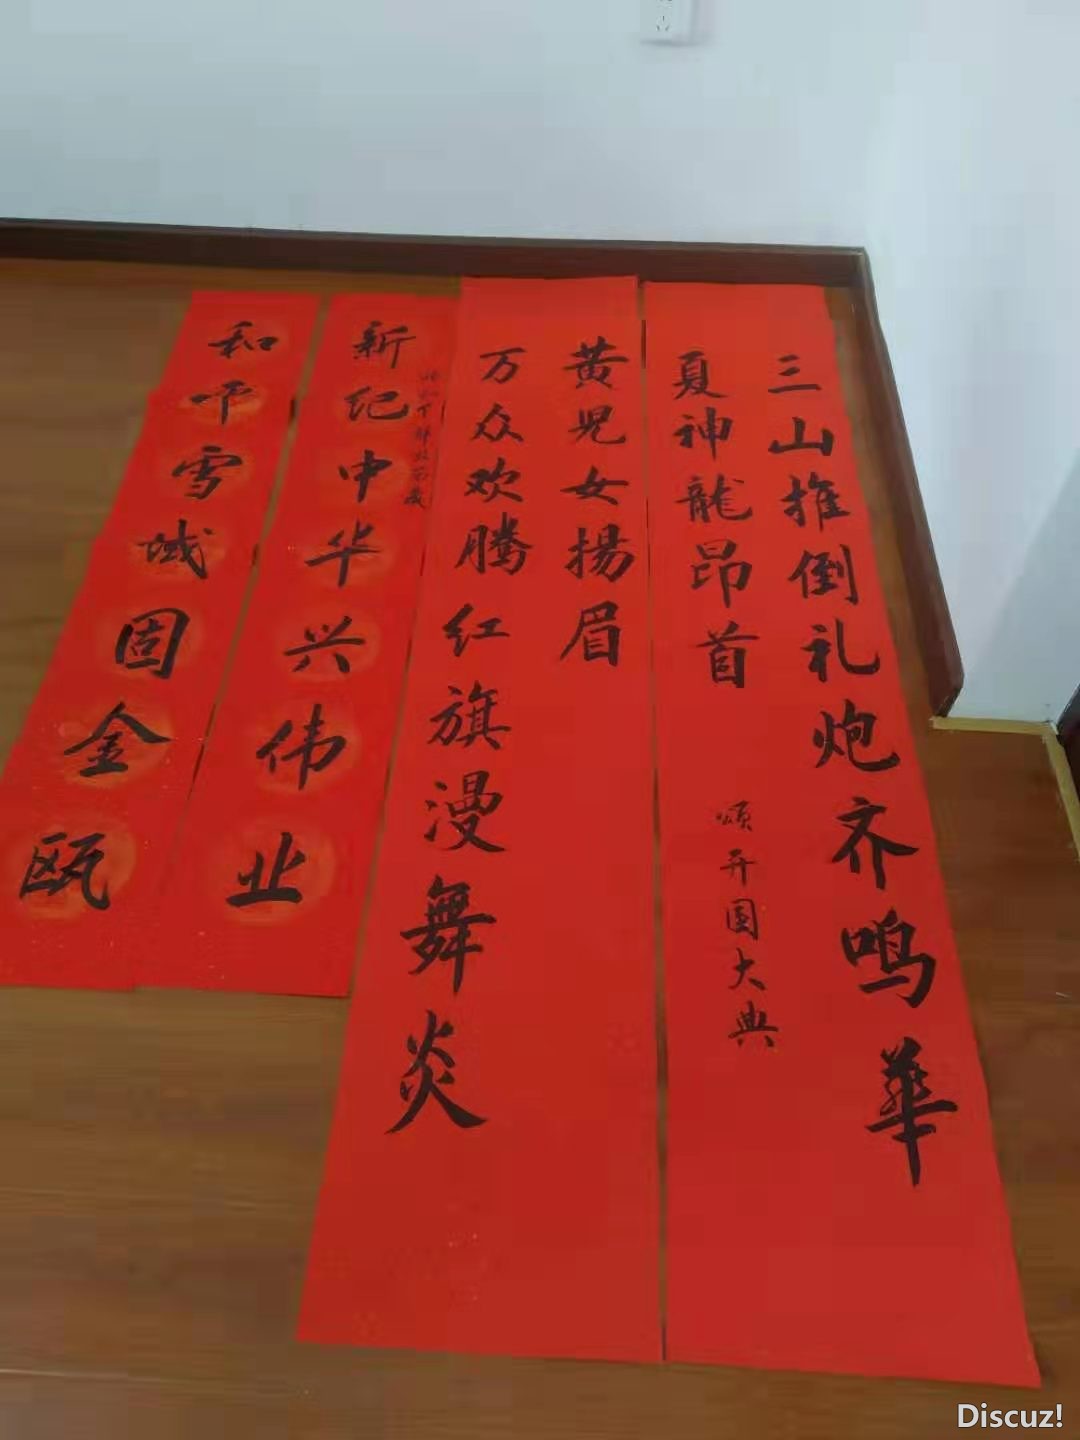 三山推倒礼炮齐鸣華
夏神龍昂首
颂开国大典
黄児女揚眉
万众欢腾红旗漫舞炎
新纪中华兴伟业
和平雪域固金瓯
Discuz!